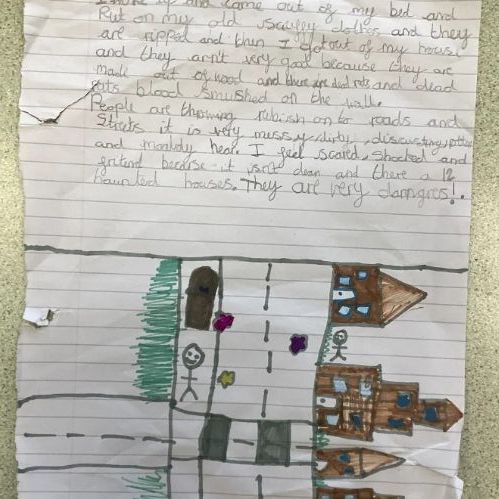 I woke up and came out of my bed and
Put on my old scruffy clothes and they
are ripped and then I got out of my house
and they arn't very good because they are
made out of wood and there are dead rats and dead
cats blood smushed on the wall.
People are throwing rubish onto roads and
Streets it is very messy, dirty, discusting,
and mouldy hear. I feel scared, shocked and
because it isn't clean and there a 12
haunted houses. They are very dangres!.